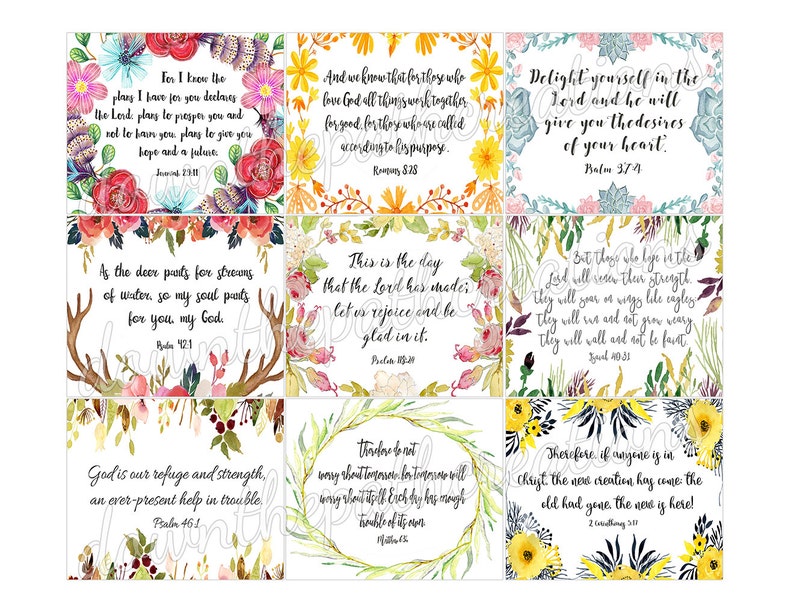 For I know the
plans I have for you declares
the Lord, plans to prosper you and
not to harm you, plans to give you
hope and a future.
Jeremiah 29:11
And we know that for those who
love God all things work together
for good, for those who are called
according to his purpose.
Romans 8:28
Delight yourself in the
Lord and he will
give you the desires
of your heart.
Psalm 37:4
As the deer pants for streams
of water, so my soul pants
for you, my God.
Psalm 42:1
This is the day
that the Lord has made;
let us rejoice and be
glad in it.
Psalm 118:24
But those who hope in the
Lord will renew their strength.
they will soar on wings like eagles;
they will run and not grow weary
they will walk and not be faint.
Isaiah 40:31
God is our refuge and strength,
an ever-present help in trouble.
Psalm 46:1
Therefore do not
worry about tomorrow, for tomorrow will
worry about itself. Each day has enough
trouble of its own.
Matthew
Therefore, if anyone is in
Christ, the new creation has come: the
old had gone, the new is here!
2 Corinthians 5:17